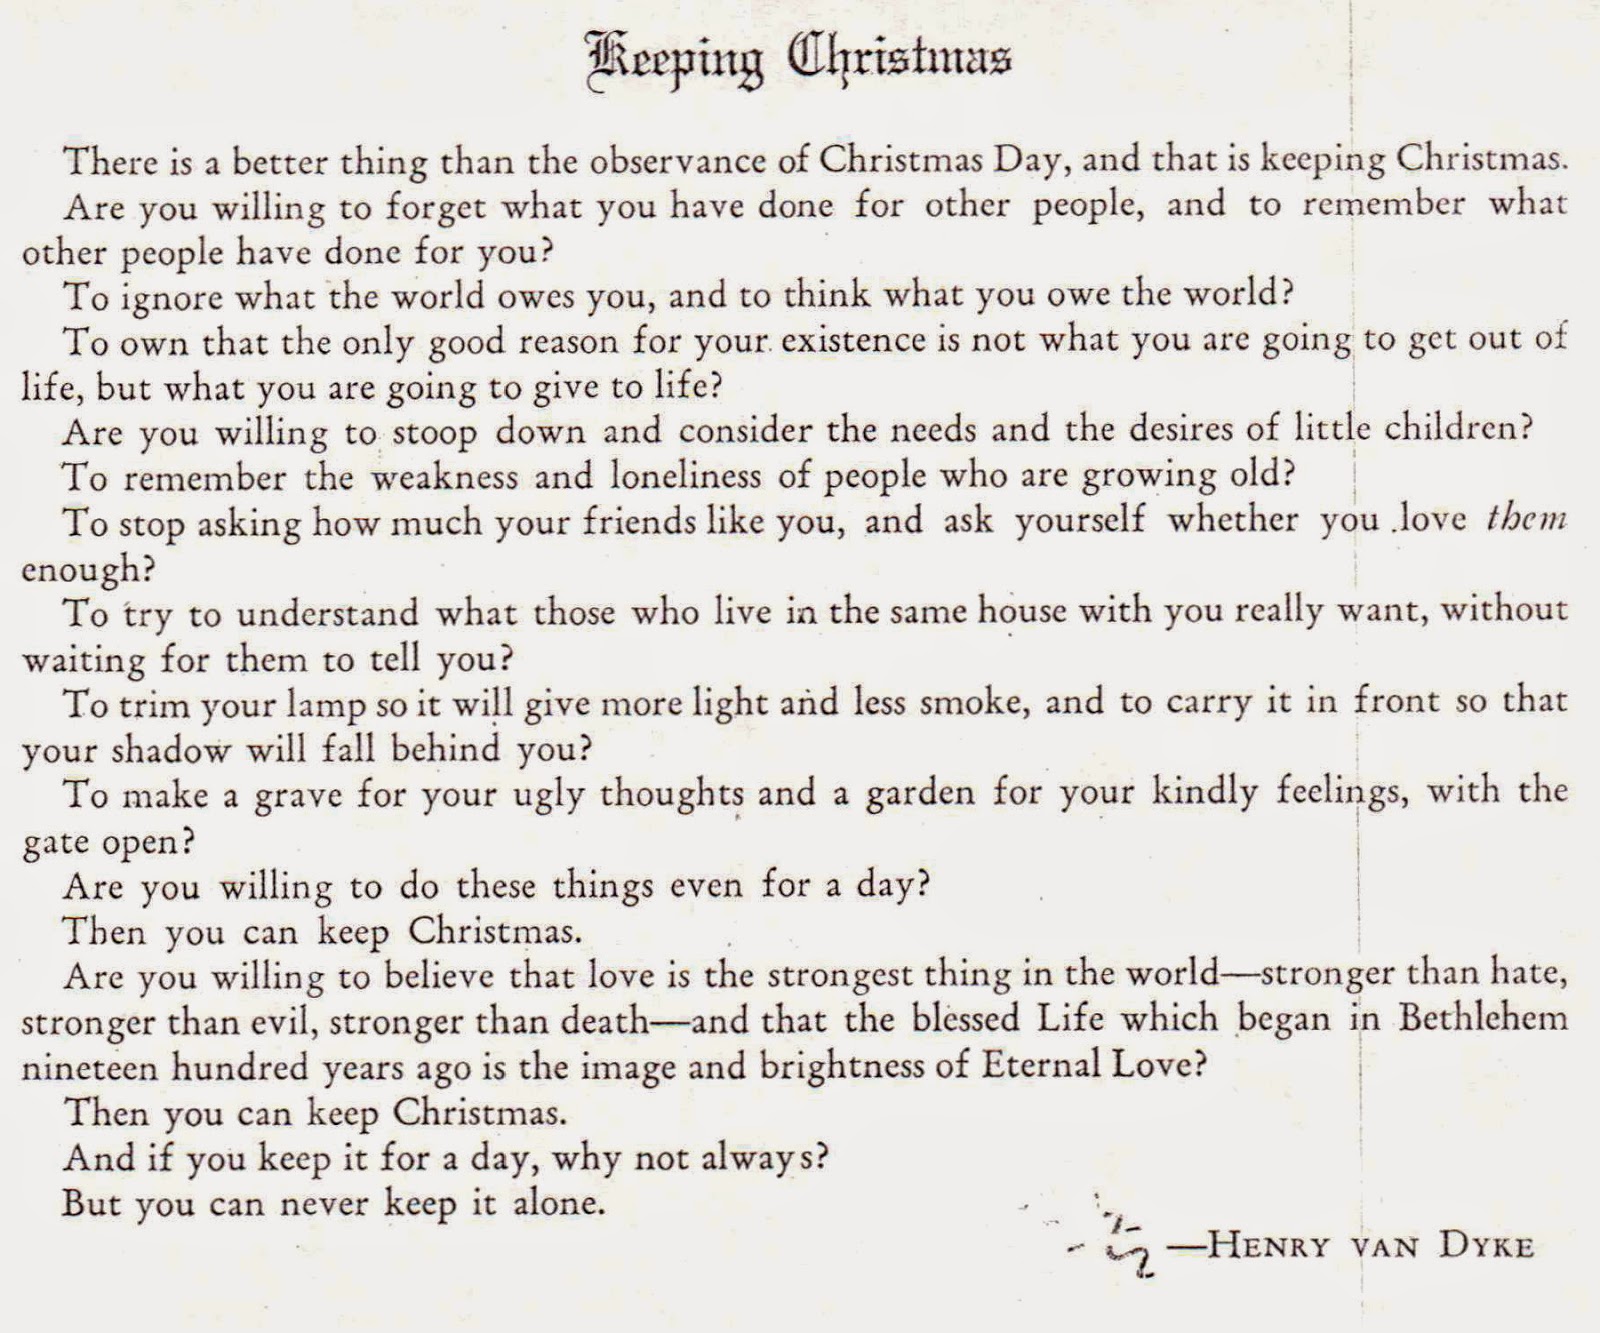 Keeping Christmas
There is a better thing than the observance of Christmas Day, and that is keeping Christmas.
Are you willing to forget what you have done for other people, and to remember what
other people have done for you?
To ignore what the world owes you, and to think what you owe the world?
To own that the only good reason for your existence is not what you are going to get out of
life, but what you are going to give to life?
Are you willing to stoop down and consider the needs and the desires of little children?
To remember the weakness and loneliness of people who are growing old?
To stop asking how much your friends like you, and ask yourself whether you love them
enough?
To try to understand what those who live in the same house with you really want, without
waiting for them to tell you?
To trim your lamp so it will give more light and less smoke, and to carry it in front so that
your shadow will fall behind you?
To make a grave for your ugly thoughts and a garden for your kindly feelings, with the
gate open?
Are you willing to do these things even for a day?
Then you can keep Christmas.
Are you willing to believe that love is the strongest thing in the world—stronger than hate,
stronger than evil, stronger than death—and that the blessed Life which began in Bethlehem
nineteen hundred years ago is the image and brightness of Eternal Love?
Then you can keep Christmas.
And if you keep it for a day, why not always?
But you can never keep it alone.
—HENRY VAN DYKE